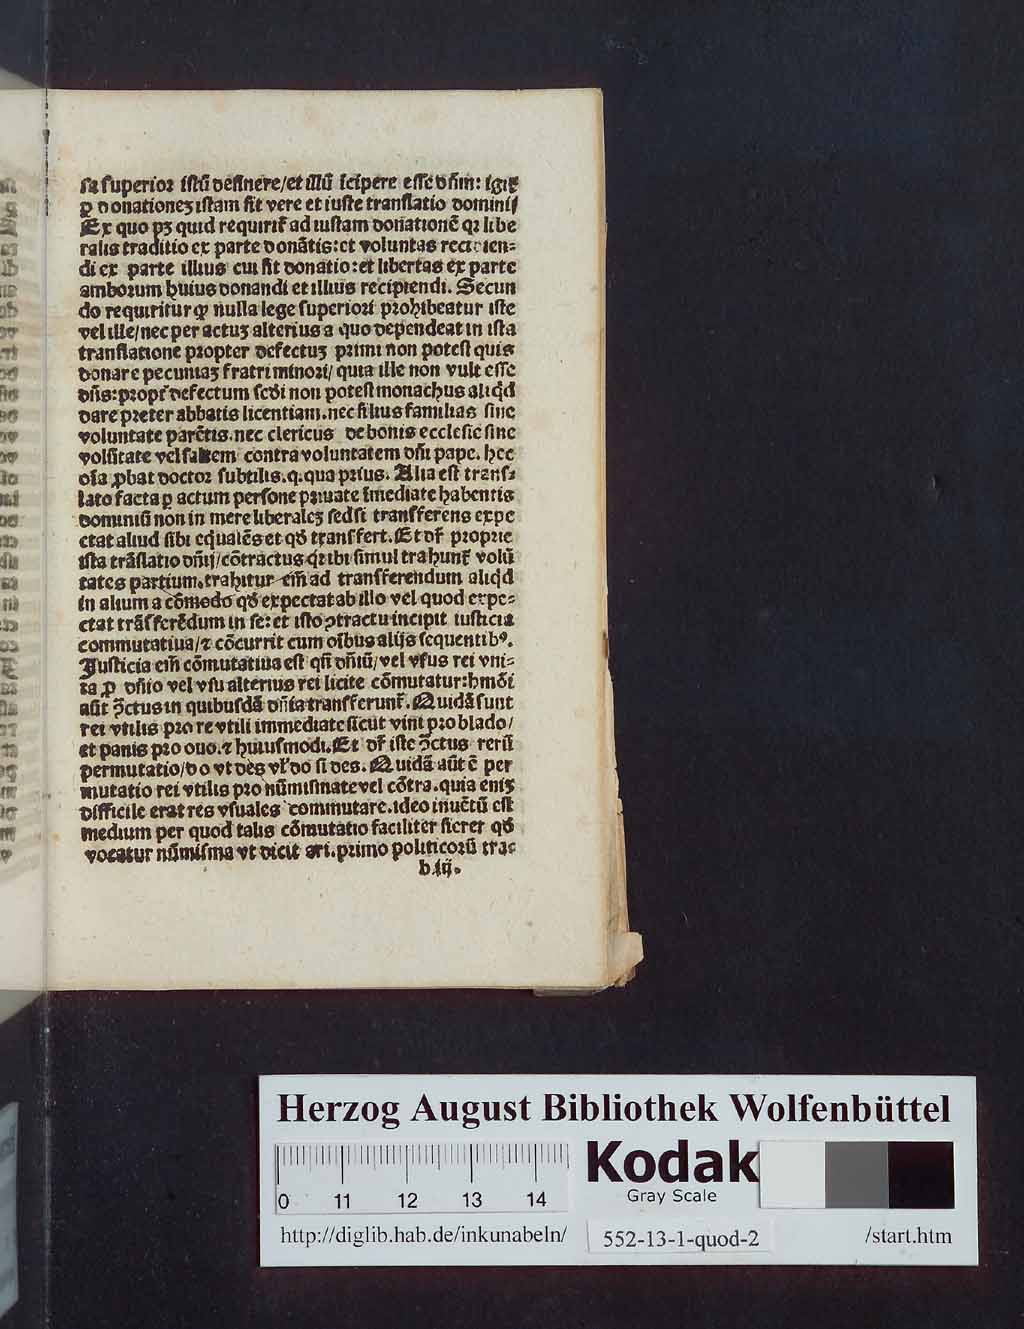 sa superior istū desinere/et illū īcipere esse dn̄m: igit̄
ꝑ donationeʒ istam sit vere et iuste translatio dominij
Ex quo pʒ quid requirit̄ ad iustam donationē qꝛ libe
ralis traditio ex parte donātis: et voluntas recipien⸗
di ex parte illius cui fit donatio: et libertas ex parte
amborum huius donandi et illius recipiendi. Secun
do requiritur ꝙ nulla lege superiori prohibeatur iste
vel ille/nec per actuʒ alterius a quo dependeat in ista
translatione propter defectuʒ primi non potest quis
donare pecuniaʒ fratri minori/ quia ille non vult esse
dn̄s: propt̄ defectum scdi non potest monachus aliqd
dare preter abbatis licentiam. nec filius familias sine
voluntate parētis. nec clericus de bonis ecclesie sine
volūtate vel saltem contra voluntatem dn̄i pape. hec
oīa ꝓbat doctor subtilis. q. qua prius. Alia est trans⸗
lato facta ꝑ actum persone priuate īmediate habentis
dominiū non in mere liberaleʒ sed si transferens expe
ctat aliud sibi eq̄ualēs et qd̄ transfert. Et dr̄ proprie
ista trāslatio dn̄ij/cōtractus qꝛ ibi simul trahunt̄ volū
tates partium. trahitur em̄ ad transferendum aliqd
in alium a cōmodo qd̄ expectat ab illo vel quod expe⸗
ctat trāsferēdum in se: et isto ꝯtractu incipit iusticia
commutatiua/⁊ cōcurrit cum oībus alijs sequentibꝰ.
Justicia em̄ cōmutatiua est qn̄ dn̄iū/vel vsus rei vni⸗
ta ꝓ dn̄io vel vsu alterius rei licite cōmutatur: hmōi
aūt ꝯ̄ctus in quibusdā dn̄ia transferunt̄. Quidā sunt
rei vtilis pro re vtili immediate sicut vini pro blado/
et panis pro ouo. ⁊ huiusmodi. Et dr̄ iste ꝯ̄ctus rerū
permutatio/do vt des vl̄ do si des. Quidā aūt ē per
mutatio rei vtilis pro nūmismate vel cōtra. quia eniʒ
difficile erat res vsuales commutare. ideo inuētū est
medium per quod talis cōmutatio faciliter fieret qd̄
vocatur nūmisma vt dicit ari. primo politicorū trac
b.iij.
Herzog August Bibliothek Wolfenbüttel
0 11 12 13 14
Kodak
Gray Scale
http://diglib.hab.de/inkunabeln/ 552-13-1-quod-2 /start.htm